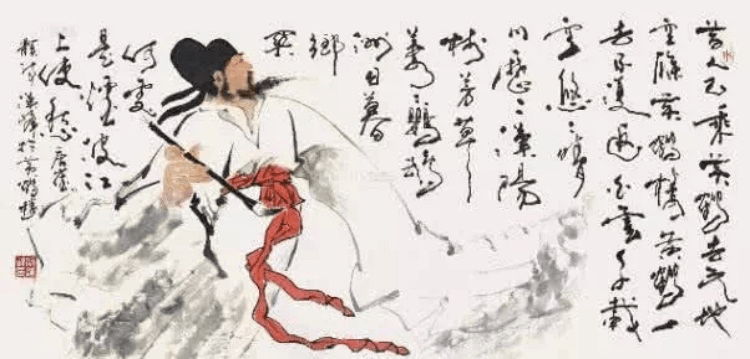 昔人已乘黃鶴去此地
空餘黃鶴樓黃鶴一
去不復返白雲千載
空悠々晴
川歷々漢陽
樹芳草
萋々鸚鵡
洲日暮
鄉
關
何處
是煙波江
上使人愁 唐崔
顥詩 於黃鶴樓